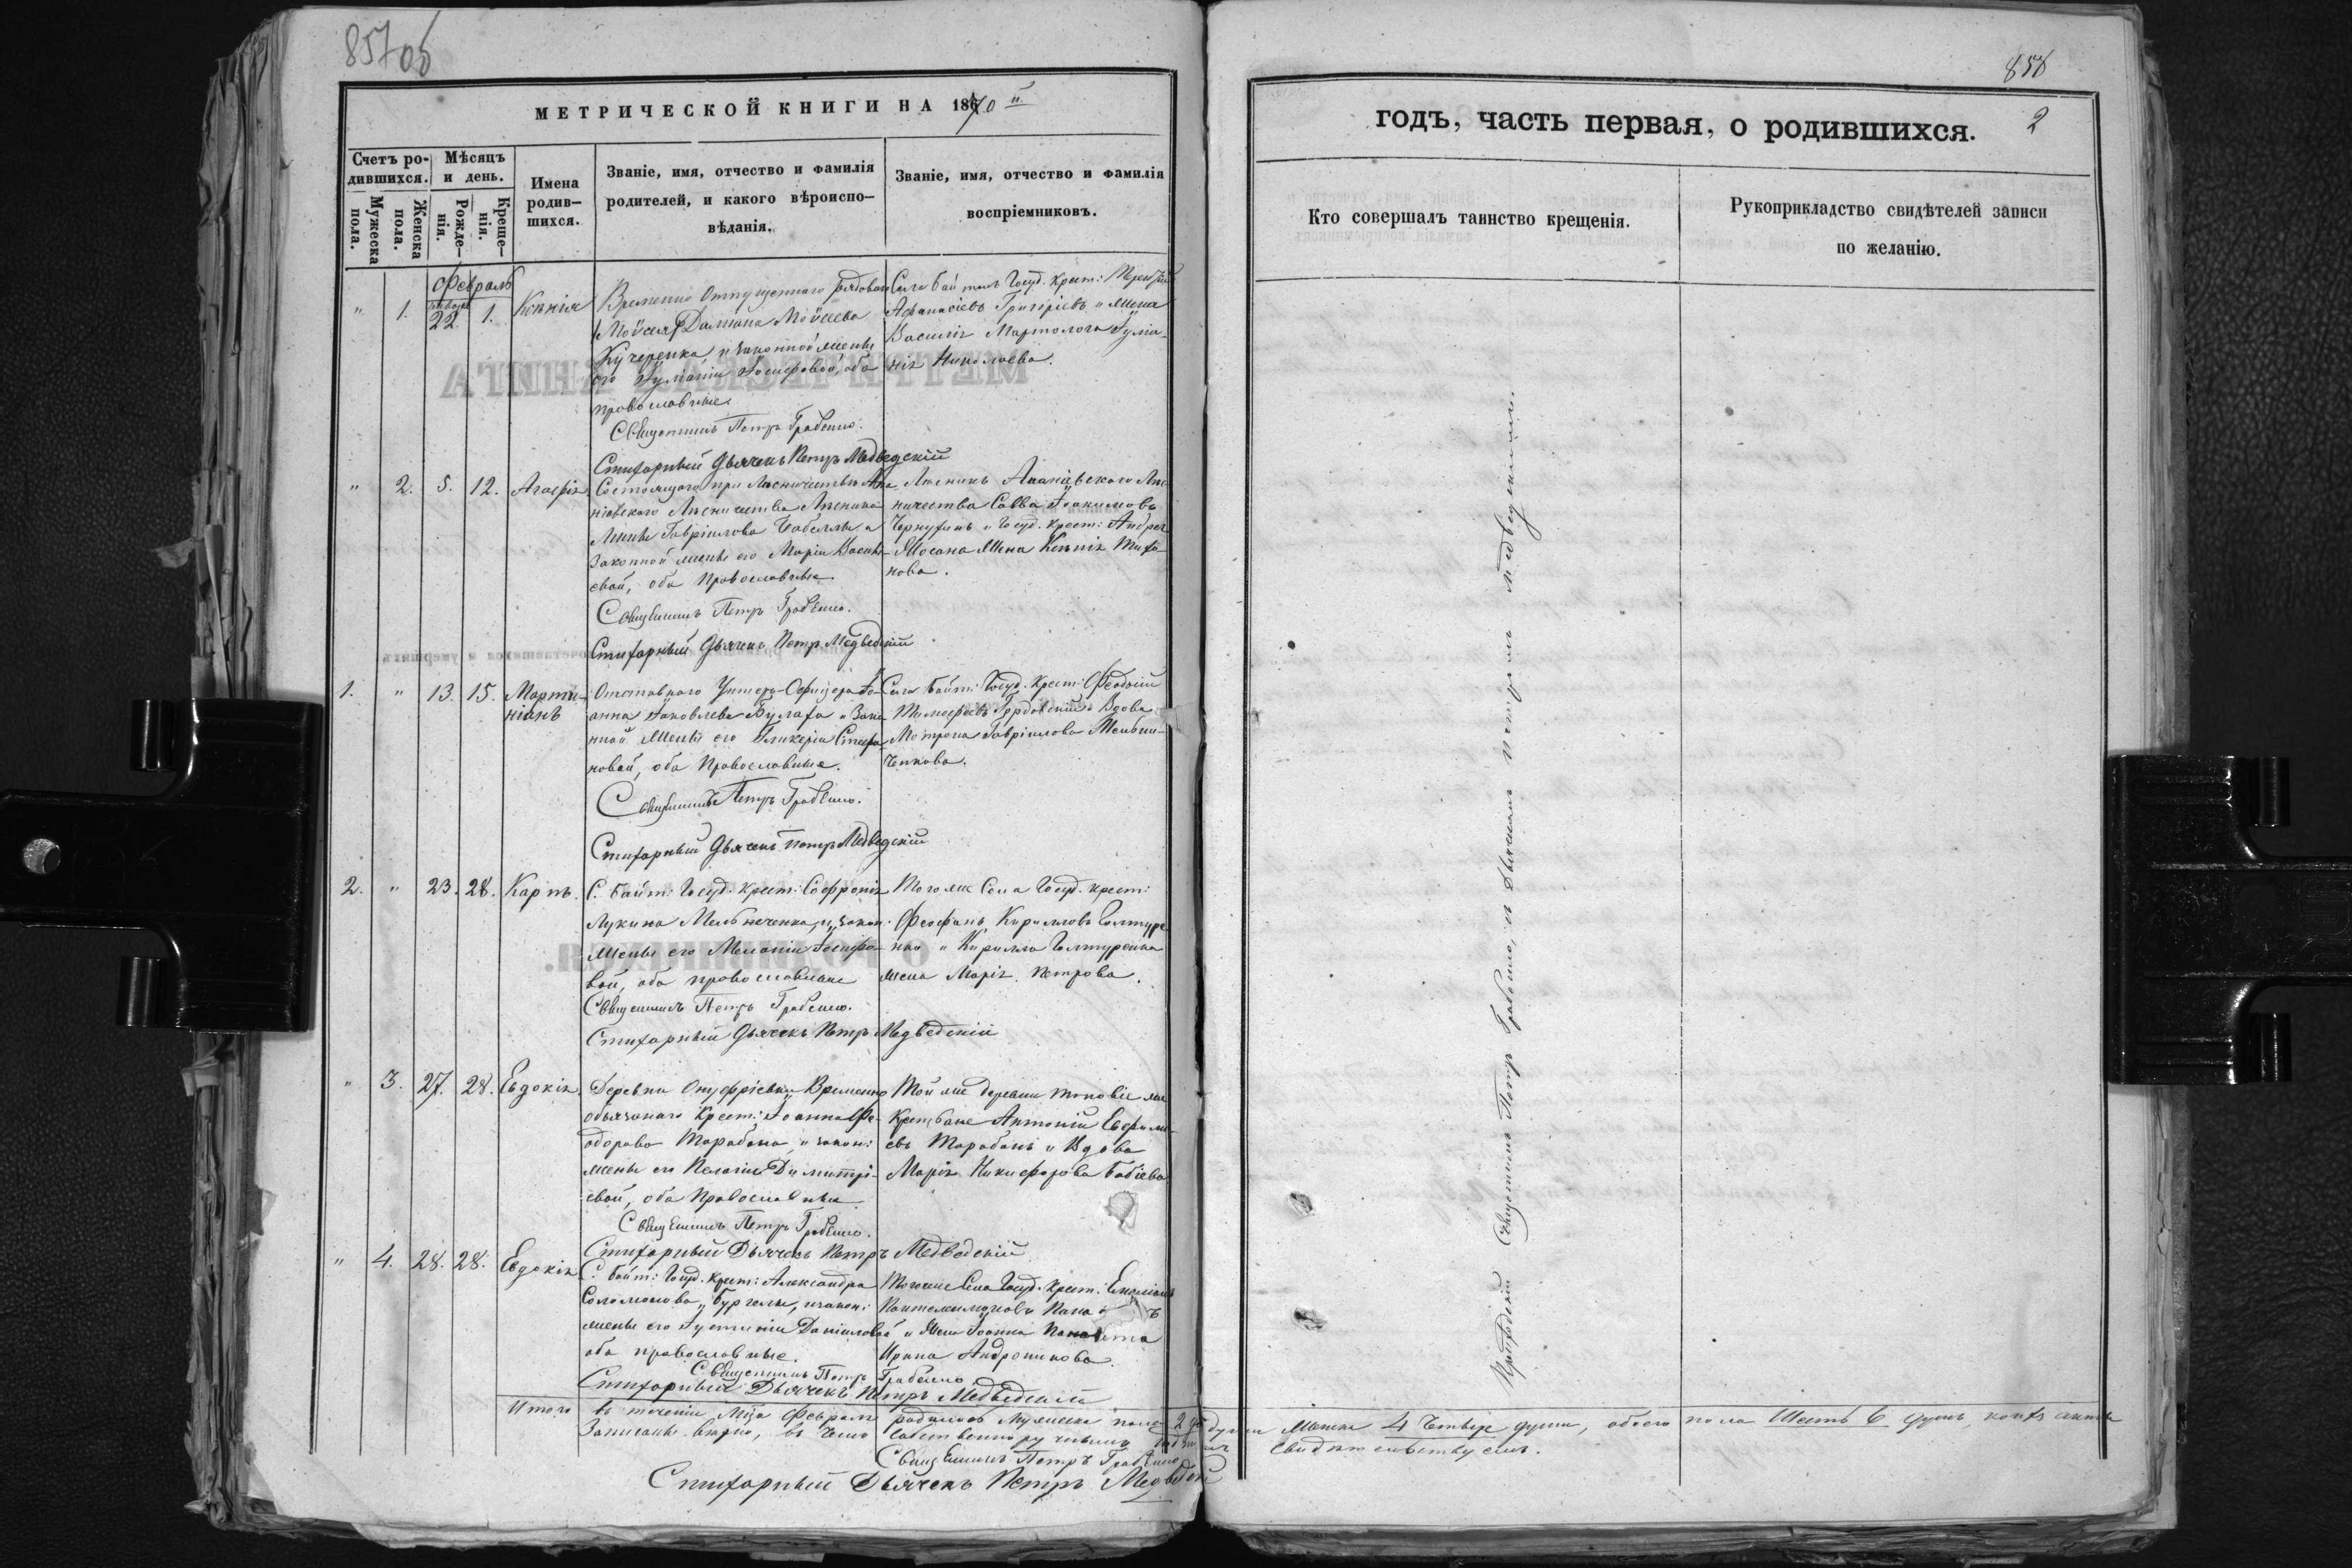 857 об
МЕТРИЧЕСКОЙ КНИГИ НА 1870 й.
Счетъ ро-
дившихся.
Мужеска пола.
Женска пола.
Мѣсяцъ
и день.
Рожде-
нія.
Креще-
нія.
Имена
родив-
шихся.
Званіе, имя, отчество и фамилія
родителей, и какого вѣроиспо-
вѣданія.
Званіе, имя, отчество и фамилія
воспріемниковъ.
Февраль
" 1. Января 22. 1. Ксенія
Временно Отпущеннаго рядоваго
Мойсея Даміана Мойсеева
Кучеренка, и законной жены
его Іуліаніи Іосифовой, оба
православные
Священникъ Петръ Грабенко.
Стихарный Дьячекъ Петръ Медведскій
Села Байталъ Госуд. крест:
Афанасіевъ Григоріевъ и жена
Василія Мартолога Іуліа-
нія Николаева.
" 2. 5. 12. Агафія
Состоящаго при Лѣсничествѣ Ана-
ніевскаго Лѣсничества Лѣсника
Гавріилова и
Законной жены его Маріи Василь-
евой, оба Православные.
Священникъ Петръ Грабенко.
Стихарный Дьячекъ Петръ Медведскій
Лѣсникъ Ананіевскаго Лѣс-
ничества Савва Іоакимовъ
и Госуд. крест: Андрея
Мосана Жена Ксенія
нова.
1. " 13. 15. Марти-
ніанъ
Отставнаго Унтеръ-Офицера Іо-
анна Іаковлева Булаха и Зако-
нной Жены его Гликеріи Стефа-
новой, оба Православные.
Священникъ Петръ Грабенко.
Стихарный Дьячекъ Петръ Медведскій
Села Байт: Госуд. Крест: Феодосій
Тимофеевъ и Вдова
Матрона Гавріилова Мельни-
ченкова.
2. " 23. 28. Карпъ.
С. Байт: Госуд. Крест: Софронія
Лукина Мельниченка, и закон:
жены его Меланіи Іосифо-
вой, оба православные
Священникъ Петръ Грабенко.
Стихарный Дьячекъ Петръ Медведскій
Тогоже Села Госуд. крест:
Феофанъ Кирилловъ Голтуре
нко и Кирилла Голтуренка
жена Марія Петрова.
" 3. 27. 28. Евдокія.
Деревни Онуфріевки Временно
обязанаго Крест: Іоанна Фе-
одорова Тарабана, и закон:
жены его Пелагіи Димитрі-
евой, оба Православные
Священникъ Петръ Грабенко.
Стихарный Дьячекъ Петръ Медведскій
Той же деревни таковіе же
Крестьяне Антоній Евфимі-
евъ Тарабанъ и Вдова
Марія Никифорова Бабіева
" 4. 28. 28. Евдокія
С. Байт: Госуд. крест: Александра
Соломонова Бургелы, и закон:
жены его Іустиніи Даніиловой
оба православные.
Священникъ Петръ Грабенко
Стихарный Дьячекъ Петръ Медведскій
Тогоже Села Госуд. Крест: Емеліанъ
Пантелеимоновъ
и Жена Іоанна
Ирина Андроникова.
Итого въ теченіи Мца Февраля родилось мужеска пола 2 два души Женска 4 Четыре души, обоего пола Шесть 6 душъ, кои акты
Записаны вѣрно, въ чемъ собственноручнымъ подписомъ свидѣтельствуемъ.
Священникъ Петръ Грабенко
Стихарный Дьячекъ Петръ Медведскій
858
2
годъ, часть первая, о родившихся.
Кто совершалъ таинство крещенія.
Рукоприкладство свидѣтелей записи
по желанію.
Приходскій Священникъ Петръ Грабенко, съ Дьячкомъ Петромъ Медведскимъ.